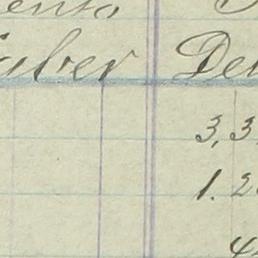 ents
aber De
3,3
1.2
4